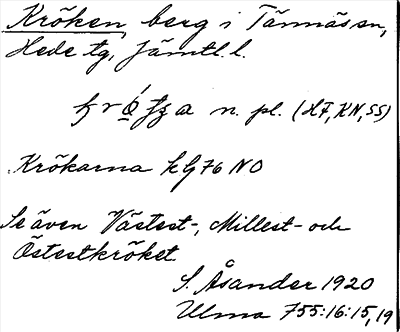 Kröken, berg i Tännäs sn,
Hede tg, Jämtl. l.
n. pl. (HF, KN, SS)
Krökarna kG76 NO
Se även Västest-, Millest- och
Östestkröket
S. Åsander 1920
Ulma 755:16:15,19